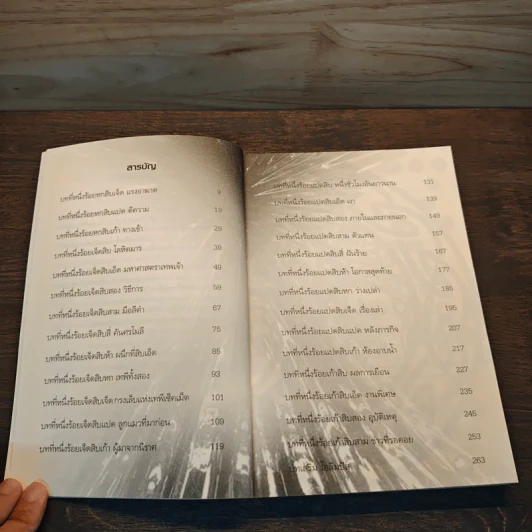 สารบัญ
บทที่หนึ่งร้อยหกสิบเจ็ด แรงอาฆาต 9
บทที่หนึ่งร้อยหกสิบแปด ตีความ 19
บทที่หนึ่งร้อยหกสิบเก้า ทางเข้า 29
บทที่หนึ่งร้อยเจ็ดสิบ โลหิตมาร 39
บทที่หนึ่งร้อยเจ็ดสิบเอ็ด มหาศาสตราเทพเจ้า 49
บทที่หนึ่งร้อยเจ็ดสิบสอง วิธีการ 59
บทที่หนึ่งร้อยเจ็ดสิบสาม มือสีดำ 67
บทที่หนึ่งร้อยเจ็ดสิบสี่ คันศรโพลี 75
บทที่หนึ่งร้อยเจ็ดสิบห้า ผนึกที่สิบเอ็ด 85
บทที่หนึ่งร้อยเจ็ดสิบหก เทพีทั้งสอง 93
บทที่หนึ่งร้อยเจ็ดสิบเจ็ด กรงเล็บแห่งเทพีเซ็คเม็ต 101
บทที่หนึ่งร้อยเจ็ดสิบแปด ลูกแมวที่มาก่อน 109
บทที่หนึ่งร้อยเจ็ดสิบเก้า ผู้มาจากนิราศ 119
บทที่หนึ่งร้อยแปดสิบ หนึ่งชั่วโมงอันยาวนาน 131
บทที่หนึ่งร้อยแปดสิบเอ็ด เงา 139
บทที่หนึ่งร้อยแปดสิบสอง ภายในและภายนอก 149
บทที่หนึ่งร้อยแปดสิบสาม ตัวแทน 157
บทที่หนึ่งร้อยแปดสิบสี่ ฝันร้าย 167
บทที่หนึ่งร้อยแปดสิบห้า โอกาสสุดท้าย 177
บทที่หนึ่งร้อยแปดสิบหก ว่างเปล่า 185
บทที่หนึ่งร้อยแปดสิบเจ็ด เรื่องเล่า 195
บทที่หนึ่งร้อยแปดสิบแปด หลังภารกิจ 207
บทที่หนึ่งร้อยแปดสิบเก้า ห้องอาบน้ำ 217
บทที่หนึ่งร้อยเก้าสิบ ผลการเยือน 227
บทที่หนึ่งร้อยเก้าสิบเอ็ด งานพิเศษ 235
บทที่หนึ่งร้อยเก้าสิบสอง อุบัติเหตุ 245
บทที่หนึ่งร้อยเก้าสิบสาม ข่าวที่รอคอย 253
บทเสริม 263